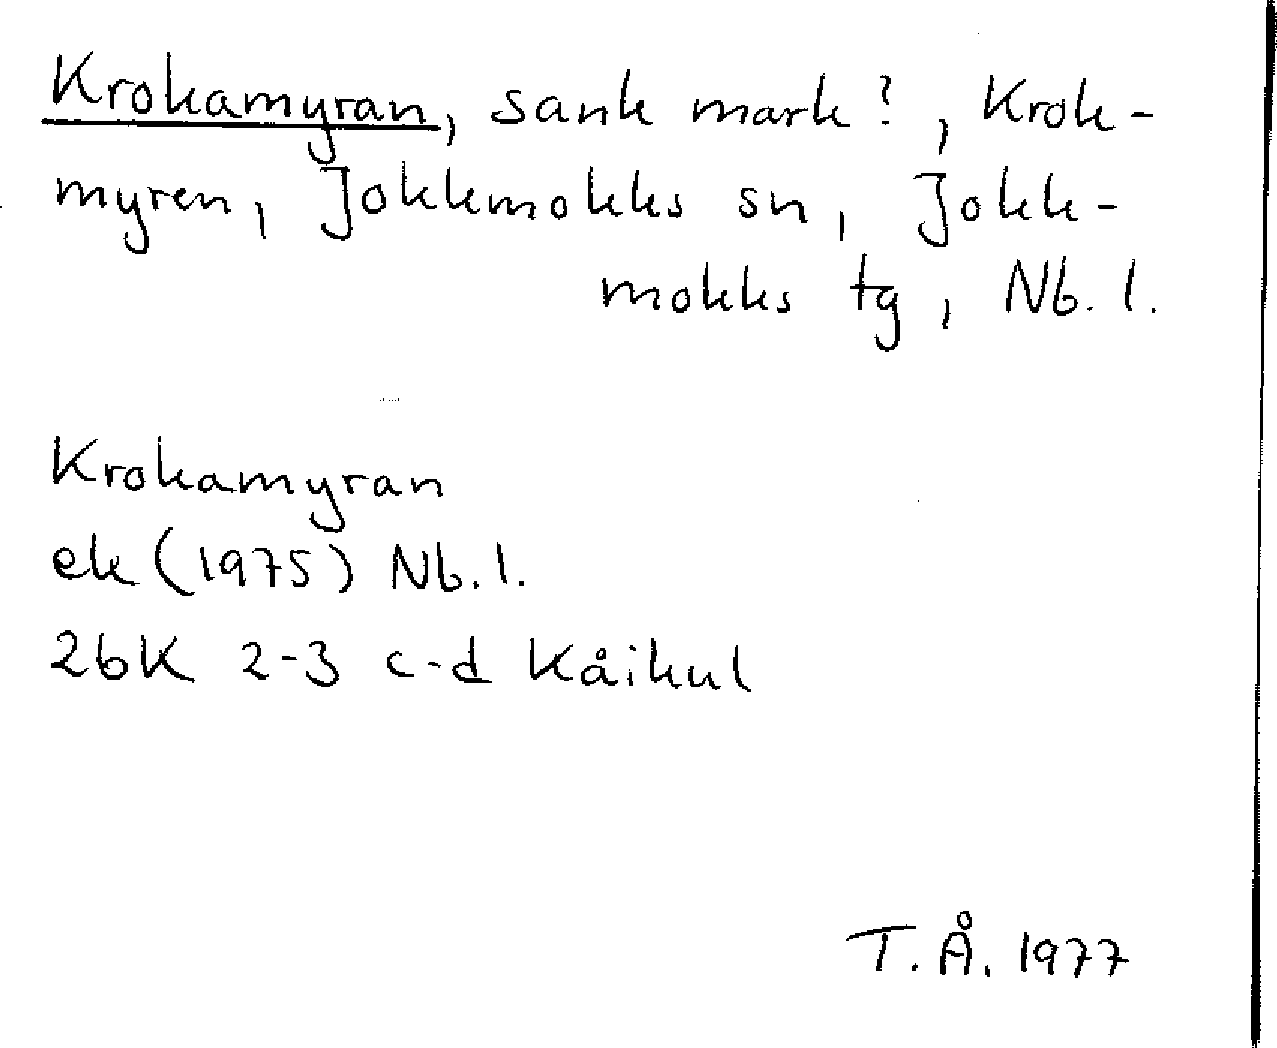 Krokamyran, sank mark?, Krok-
myren, Jokkmokks sn, Jokk-
mokks tg, Nb. l.
Krokamyran
ek (1975) Nb. l.
26K 2-3 c-d Kåikul
T.Å. 1977